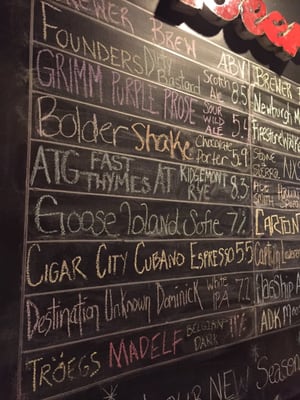 BREWER BREW ABV BREWER
Founders Dirty Bastard Scotch Ale 8.5
GRIMM PURPLE PROSE SOUR WILD ALE 5.4
Bolder Shake Chocolate Porter 5.9
ATG FAST THYMES AT RIDGEMONT RYE 8.3
Goose Island Sofie 7%
CIGAR CITY CUBANO ESPRESSO 5.5
Destination Unknown Dominick WHITE IPA 7.2
TRÖEGS MADELF BELGIAN DARK 11%
Newburgh
Firestone
STONE
CARTON
Captain
ADK
OUR NEW
Season